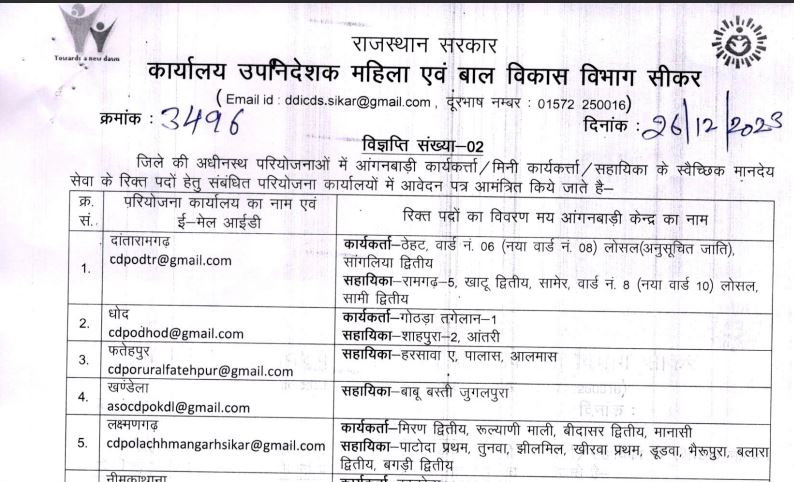 Towards a new dawn
राजस्थान सरकार
कार्यालय उपनिदेशक महिला एवं बाल विकास विभाग सीकर
( Email id : ddicds.sikar@gmail.com , दूरभाष नम्बर : 01572 250016)
क्रमांक : 3496
दिनांक : 26/12/2023
विज्ञप्ति संख्या–02
जिले की अधीनस्थ परियोजनाओं में आंगनबाड़ी कार्यकर्त्ता/मिनी कार्यकर्त्ता/सहायिका के स्वैच्छिक मानदेय
सेवा के रिक्त पदों हेतु संबंधित परियोजना कार्यालयों में आवेदन पत्र आमंत्रित किये जाते है–
क्र. सं.
परियोजना कार्यालय का नाम एवं
ई–मेल आईडी
रिक्त पदों का विवरण मय आंगनबाड़ी केन्द्र का नाम
1.
दांतारामगढ़
cdpodtr@gmail.com
कार्यकर्ता–ठेहट, वार्ड नं. 06 (नया वार्ड नं. 08) लोसल(अनुसूचित जाति),
सांगलिया द्वितीय
सहायिका–रामगढ़–5, खाटू द्वितीय, सामेर, वार्ड नं. 8 (नया वार्ड 10) लोसल,
सामी द्वितीय
2.
धोद
cdpodhod@gmail.com
कार्यकर्ता–गोठड़ा तगेलान–1
सहायिका–शाहपुरा–2, आंतरी
3.
फतेहपुर
cdporuralfatehpur@gmail.com
सहायिका–हरसावा ए, पालास, आलमास
4.
खण्डेला
asocdpokdl@gmail.com
सहायिका–बाबू बस्ती जुगलपुरा
5.
लक्ष्मणगढ़
cdpolachhmangarhsikar@gmail.com
कार्यकर्ता–मिरण द्वितीय, रूल्याणी माली, बीदासर द्वितीय, मानासी
सहायिका–पाटोदा प्रथम, तुनवा, झीलमिल, खीरवा प्रथम, डूडवा, भैरूपुरा, बलारा
द्वितीय, बगड़ी द्वितीय
नीमकाथाना